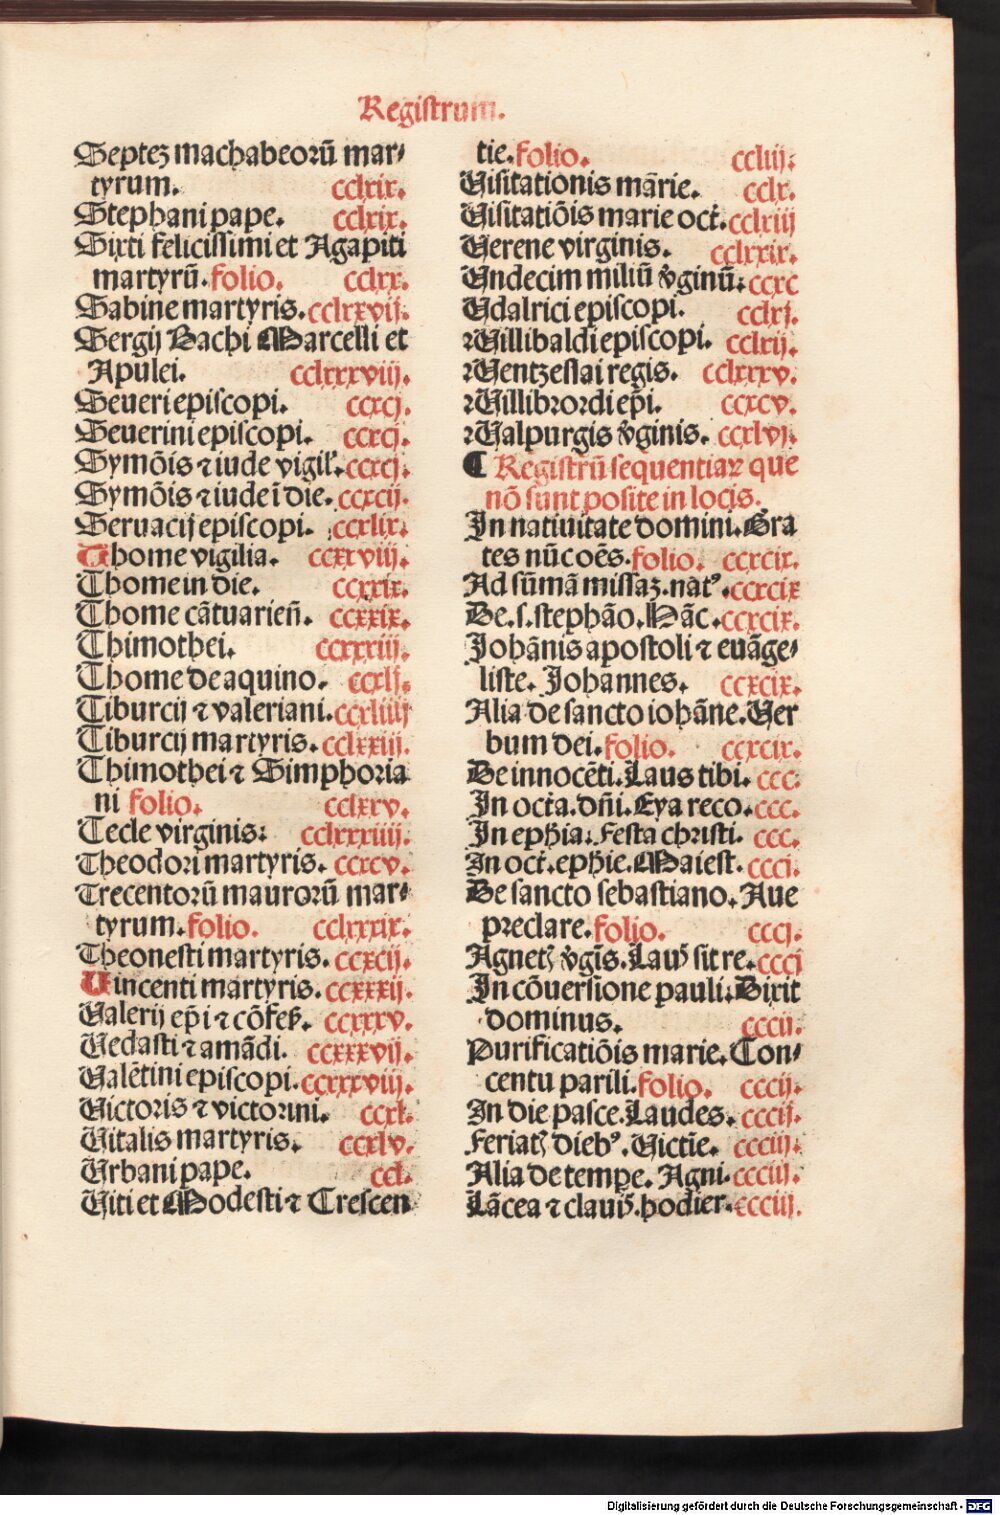 Registrum.
Septeʒ machabeorū mar⸗
tyrum. cclxix.
Stephani pape. cclxix.
Sixti felicissimi et Agapiti
martyrū. folio. cclxx.
Sabine martyris. cclxxvij.
Sergij Bachi Marcelli et
Apulei. cclxxxviij.
Seueri episcopi. ccxcj.
Seuerini episcopi. ccxcj.
Symōis ⁊ iude vigil'. ccxcj.
Symōis ⁊ iude ī die. ccxcij.
Seruacij episcopi. ccxlix.
Thome vigilia. ccxxviij.
Thome in die. ccxxix.
Thome cātuarieñ. ccxxix.
Thimothei. ccxxxiij.
Thome de aquino. ccxlj.
Tiburcij ⁊ valeriani. ccxliiij
Tiburcij martyris. cclxxiij.
Thimothei ⁊ Simphoria
ni folio. cclxxv.
Tecle virginis: cclxxxiiij.
Theodori martyris. ccxcv.
Trecentorū maurorū mar⸗
tyrum. folio. cclxxxix.
Theonesti martyris. ccxcij.
Vincenti martyris. ccxxxij.
Valerij ep̄i ⁊ cōfeß. ccxxxv.
Vedasti ⁊ amādi. ccxxxvij.
Valētini episcopi. ccxxxviij.
Victoris ⁊ victorini. ccxl.
Vitalis martyris. ccxlv.
Vrbani pape. ccl.
Viti et Modesti ⁊ Crescen
tie. folio. ccliij.
Visitationis mārie. cclx.
Visitatiōis marie oct̄. cclxiij
Verene virginis. cclxxix.
Vndecim miliū v̄ginū. ccxc
Vdalrici episcopi. cclxj.
Willibaldi episcopi. cclxij.
Wentzeslai regis. cclxxxv.
Willibrordi ep̄i. ccxcv.
Walpurgis v̄ginis. ccxlvj.
¶ Registrū sequentiaꝝ que
nō sunt posite in locis.
In natiuitate domini. Gra
tes nūc oēs. folio. ccxcix.
Ad sūmā missaʒ. natꝰ. ccxcix
De. s. stephāo. Hāc. ccxcix.
Johānis apostoli ⁊ euāge⸗
liste. Johannes. ccxcix.
Alia de sancto iohāne. Ver
bum dei. folio. ccxcix.
De innocēti. Laus tibi. ccc.
In octa. dñi. Eya reco. ccc.
In eph̄ia. Festa christi. ccc.
In oct̄. eph̄ie. Maiest. cccj.
De sancto sebastiano. Aue
preclare. folio. cccj.
Agnetꝭ v̄gīs. Laus sit re. cccj
In cōuersione pauli. Dixit
dominus. cccij.
Purificatiōis marie. Con⸗
centu parili. folio. cccij.
In die pasce. Laudes. cccij.
Feriatꝭ diebꝰ. Victīe. cccij.
Alia de tempe. Agni. cccij.
Lācea ⁊ clauis. hodier. ccciij.
Digitalisierung gefördert durch die Deutsche Forschungsgemeinschaft - DFG